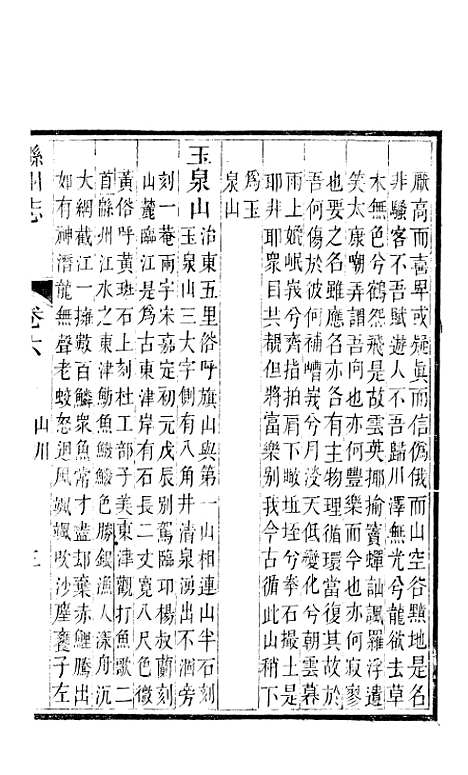 厭高而喜卑或疑眞而信僞俄而山空谷黯地是名
非騷客不吾賦遊人不吾歸川澤無光兮龍欲去草
木無色兮鶴怨飛是故雲英揶揄寶蟬訕諷羅浮遺
笑太康嘲弄謂吾何由也亦何豐樂而今也亦何寂寥
也要之名雖應名亦各有主物理循環當復其故於
吾何傷於何補嘈峩兮月淡天低變化兮朝雲暮
雨上媲岷峩兮齊拍拍肩下瞰培兮卷石撮土是
耶非耶衆目共覩但將富樂别我今古循此山稍下
爲玉
泉山
玉泉山治東五里俗呼旗山與第一山相連山半石刻
玉泉山三大字側有八角井清泉湧出不涸旁
刻一菴兩字宋嘉定初元戊辰别駕臨卭楊叔蘭刻
山麓臨江是爲古東津岸有石長二丈寛八尺色微
黃俗呼黃斑石上刻杜工部子美東津觀打魚歌二
首緜州江水之東津魴魚鱍鱍色勝銀漁人漾舟沉
大網截江一擁數百鱗衆魚常才盡却棄赤鯉騰出
如有神潛龍無聲老蛟怒迴風颯颯吹沙塵饔子左
緜州志
卷六
山川
三